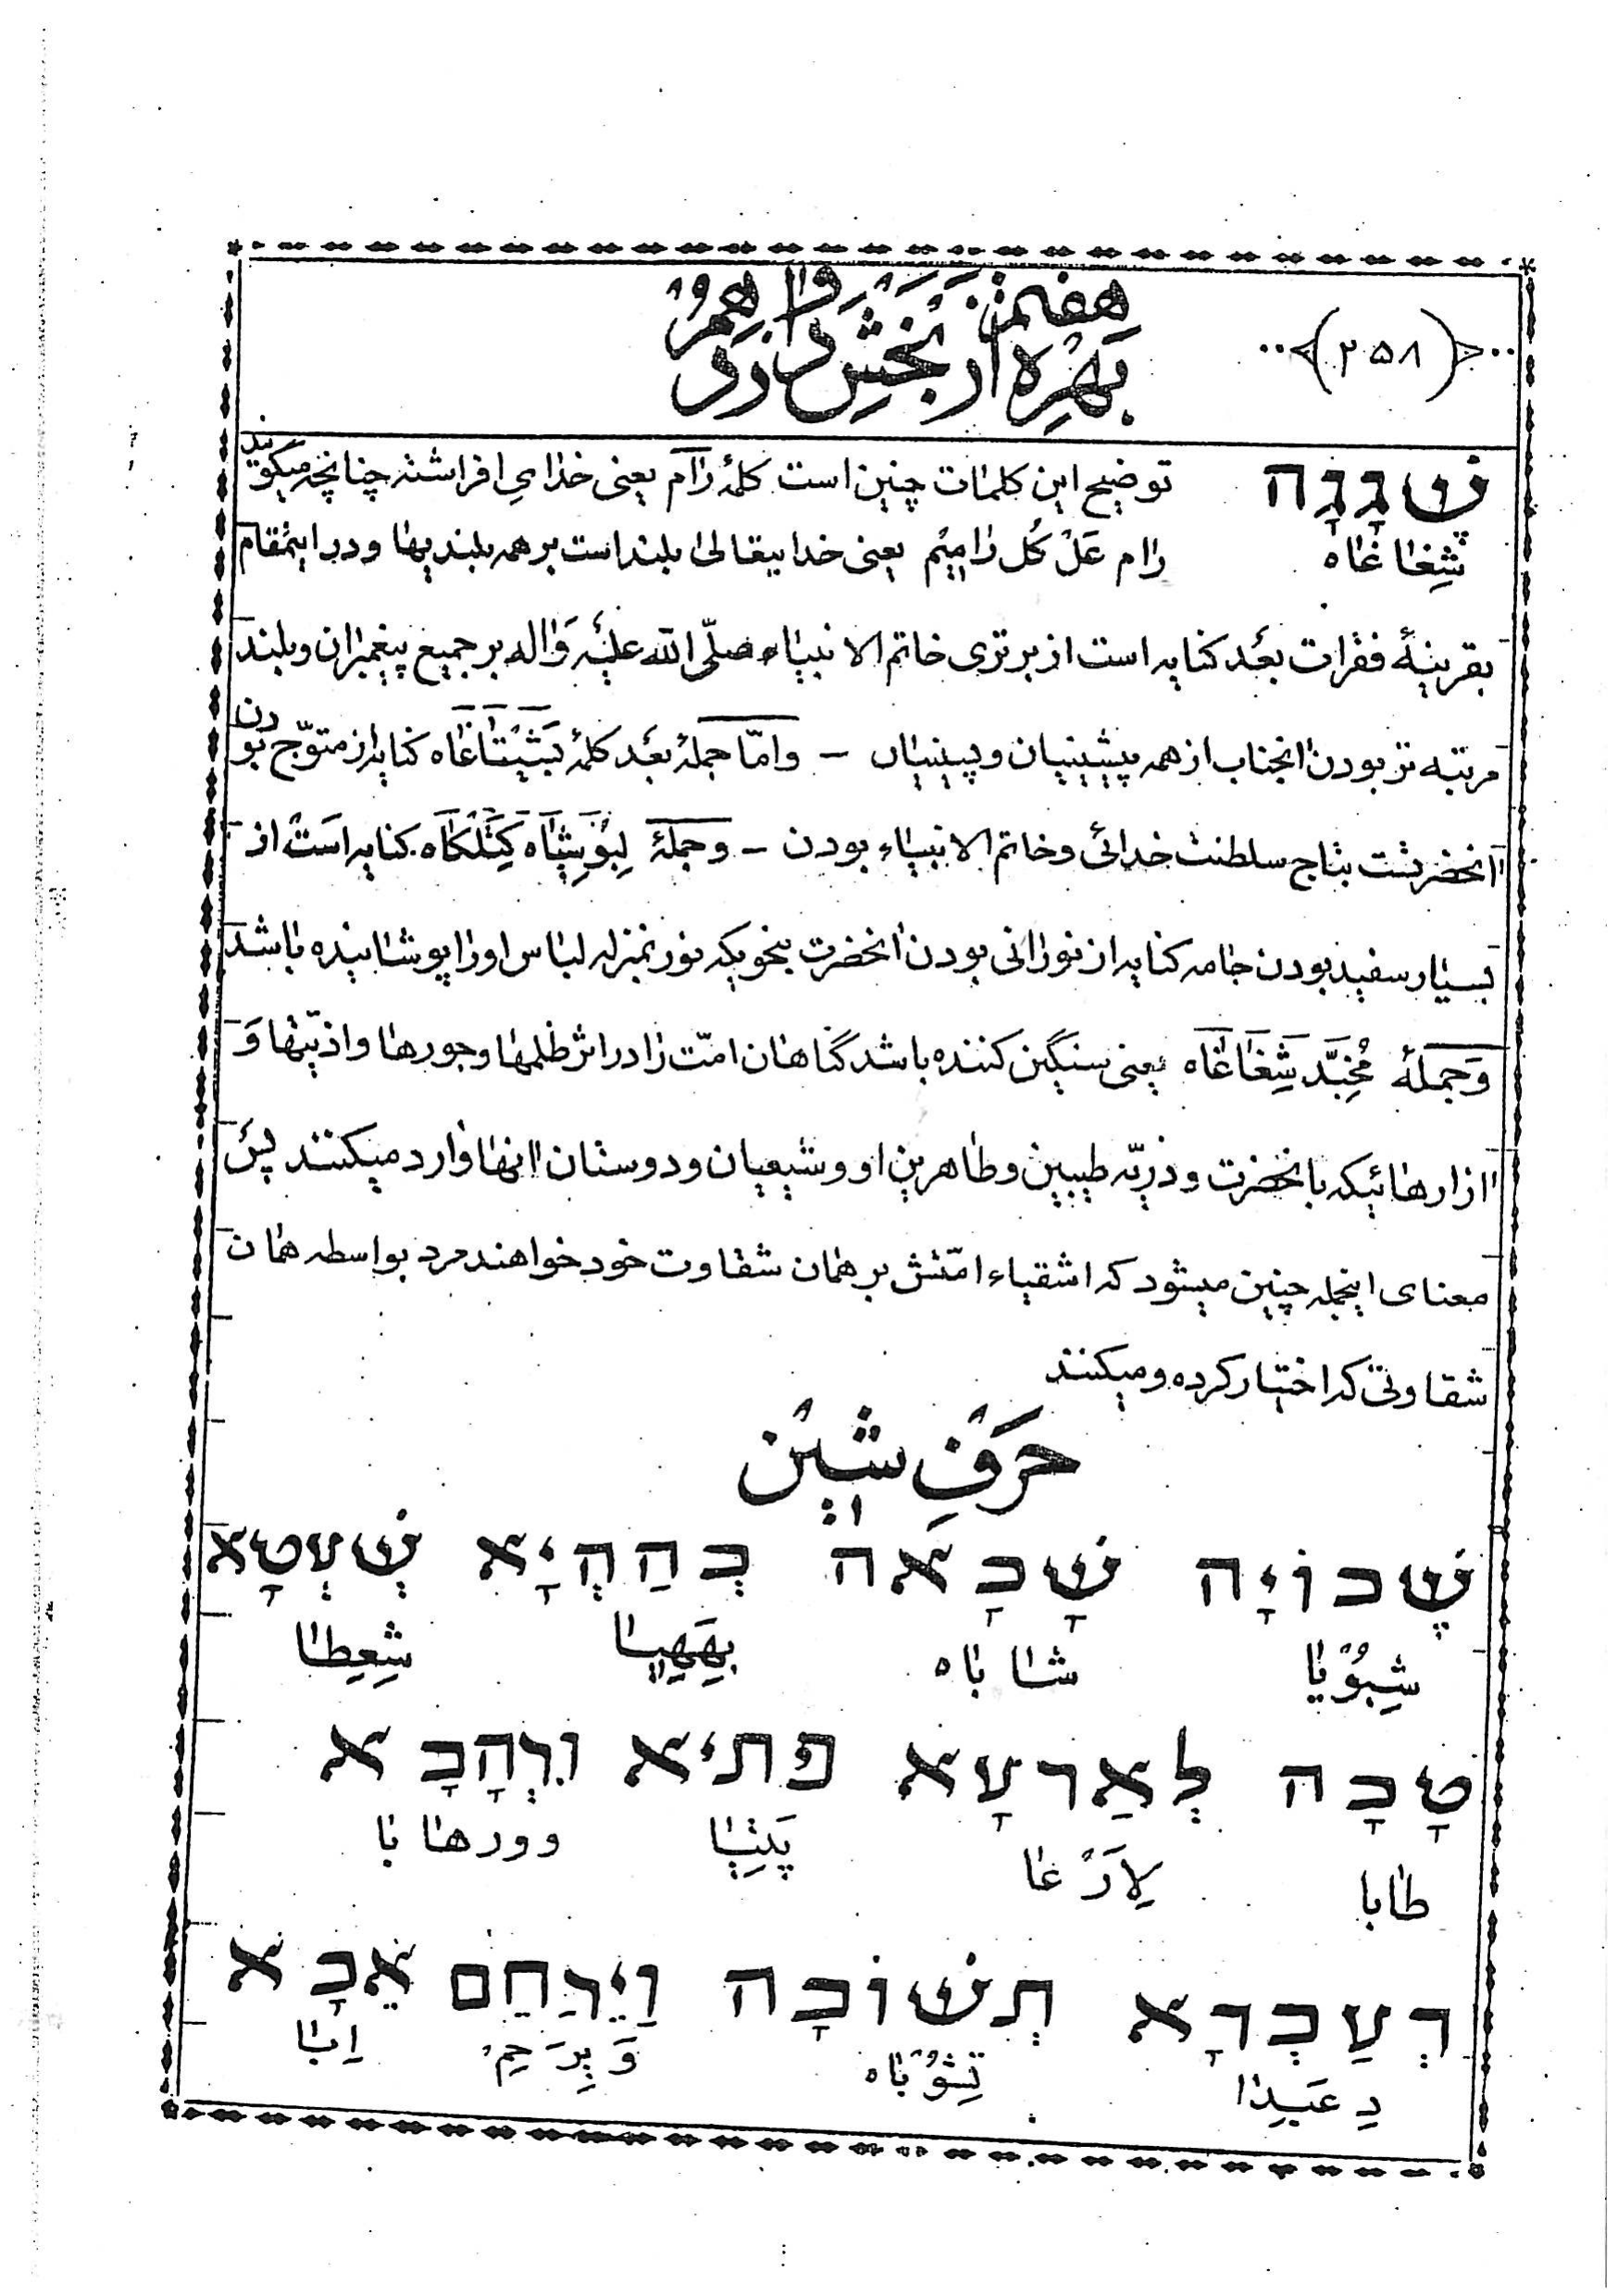 ﴿۲۵۸﴾
بهره هفتمین از بخش دوازدهم
שְׁגָגָה توضیح این کلمات چنین است کلمهٔ رٰام یعنی خدای افراشته چنانچه میگویند
شِغٰاغٰاه رٰام عَلْ کُل رٰامیٖم یعنی خدایتعالی بلند است بر همه بلندیها و در اینمقام
بقرینهٔ فقرات بعد کنایه است از برتری خاتم الانبیاء صلّی الله علیه واله بر جمیع پیغمبران و بلند
مرتبه تر بودن انجناب از همه پیشینیان و پسینیان – و امّا جملهٔ بعد کلمهٔ کنایه از متوّج بودن
انحضرتست بتاج سلطنت خدائی و خاتم الانبیاء بودن – و جملهٔ لِبُوشِیٰاه کِتَلْکٰاه کنایه است از
بسیار سفید بودن جامه کنایه از نورانی بودن انحضرت بنحویکه نور بمنزله لباس او را پوشاینده باشد
وَجملهٔ مُخِبَّد شِغٰاغٰاه یعنی سنگین کننده باشد گناهان امّت را در اثر ظلمها و جورها و اذیّتها وَ
ازارهائیکه بانحضرت و ذریّه طیبین و طاهرین او و شیعیان و دوستان انها وارد میکنند پس
معنای اینجمله چنین میشود که اشقیاء امّتش بر همان شقاوت خود خواهند مرد بواسطه همان
شقاوتی که اختیار کرده و میکنند
حَرفِ شیٖن
שְׁבוֹיָה שָׁבָאה בְּהַהְיָא שְׁעְטָא
شِبُوْیٰا شٰا بٰاه بِهَهِیٰا شِعِطٰا
טָבָה לְאַרעָא פתיא וּרְהָבָא
طٰابا لِاَرْغٰا پَتِیٰا وورهٰا بٰا
דְעַבְדָא תְּשׁוֹבָה וַיֵרַחֵם אֵבָא
دِ عَبِدٰا تِشُوْبٰاه وَ یِرَحِم اِبٰا